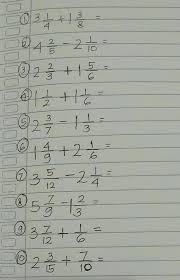 ① 3 1/4 + 1 3/8 =
② 4 2/5 - 2 1/10 =
③ 2 2/3 + 1 5/6 =
④ 1 1/2 + 1 1/6 =
⑤ 2 3/7 - 1 1/3 =
⑥ 1 4/9 + 2 1/6 =
⑦ 3 5/12 - 2 1/4 =
⑧ 5 7/9 - 1 2/3 =
⑨ 3 7/12 + 1/6 =
⑩ 2 3/15 + 7/10 =